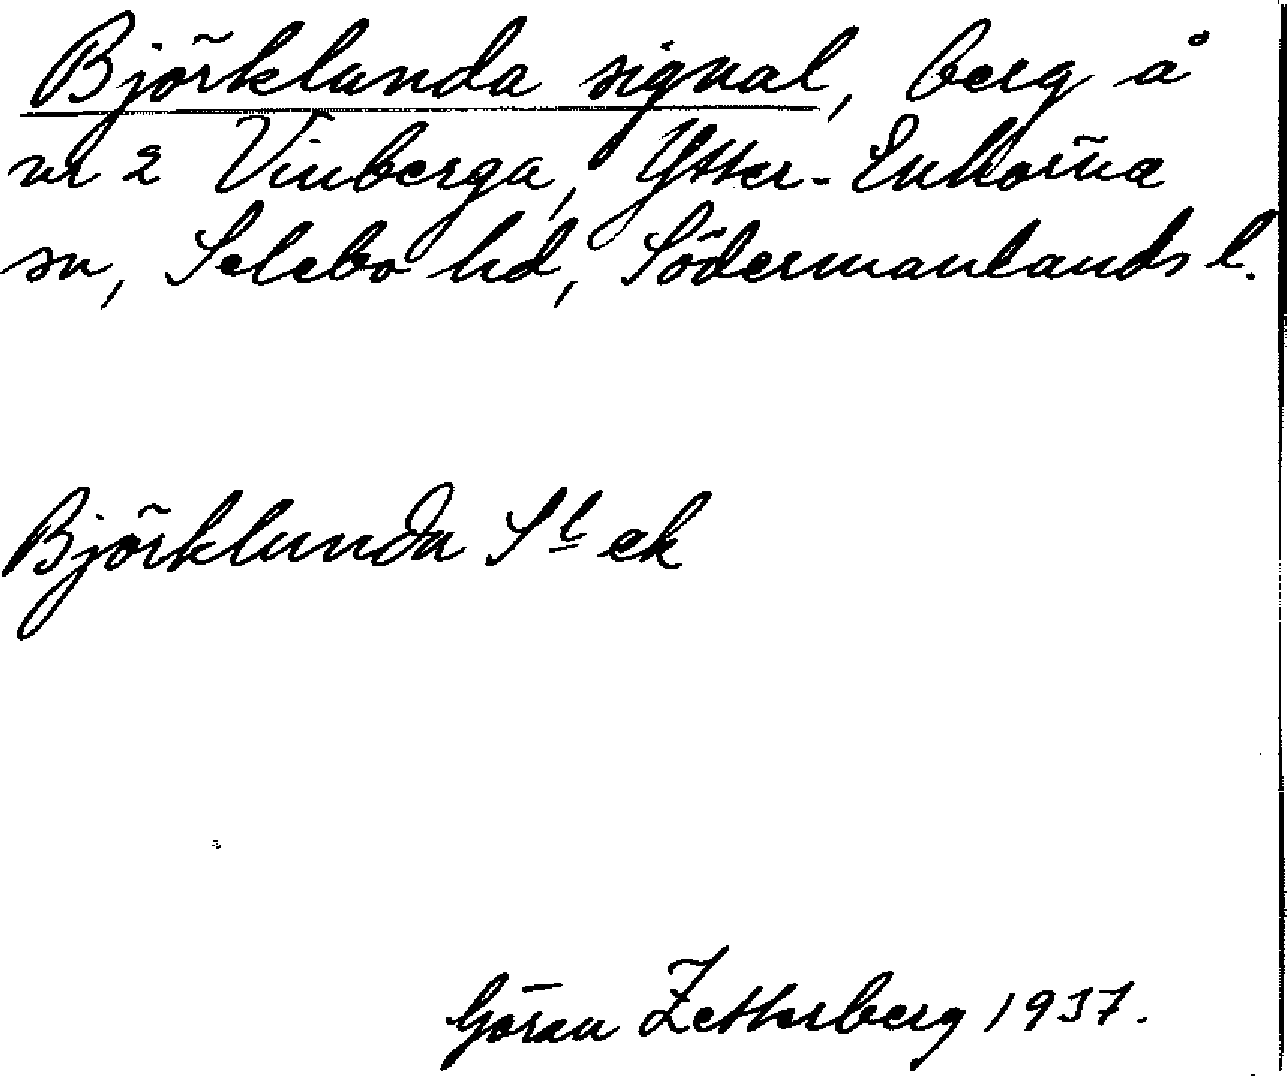 Björklunda signal, berg å
nr 2 Vinberga, Ytter-Enhörna
sn, Selebo hd, Södermanlands l.
Björklunda Sl ek
Göran Zetterberg 1937.